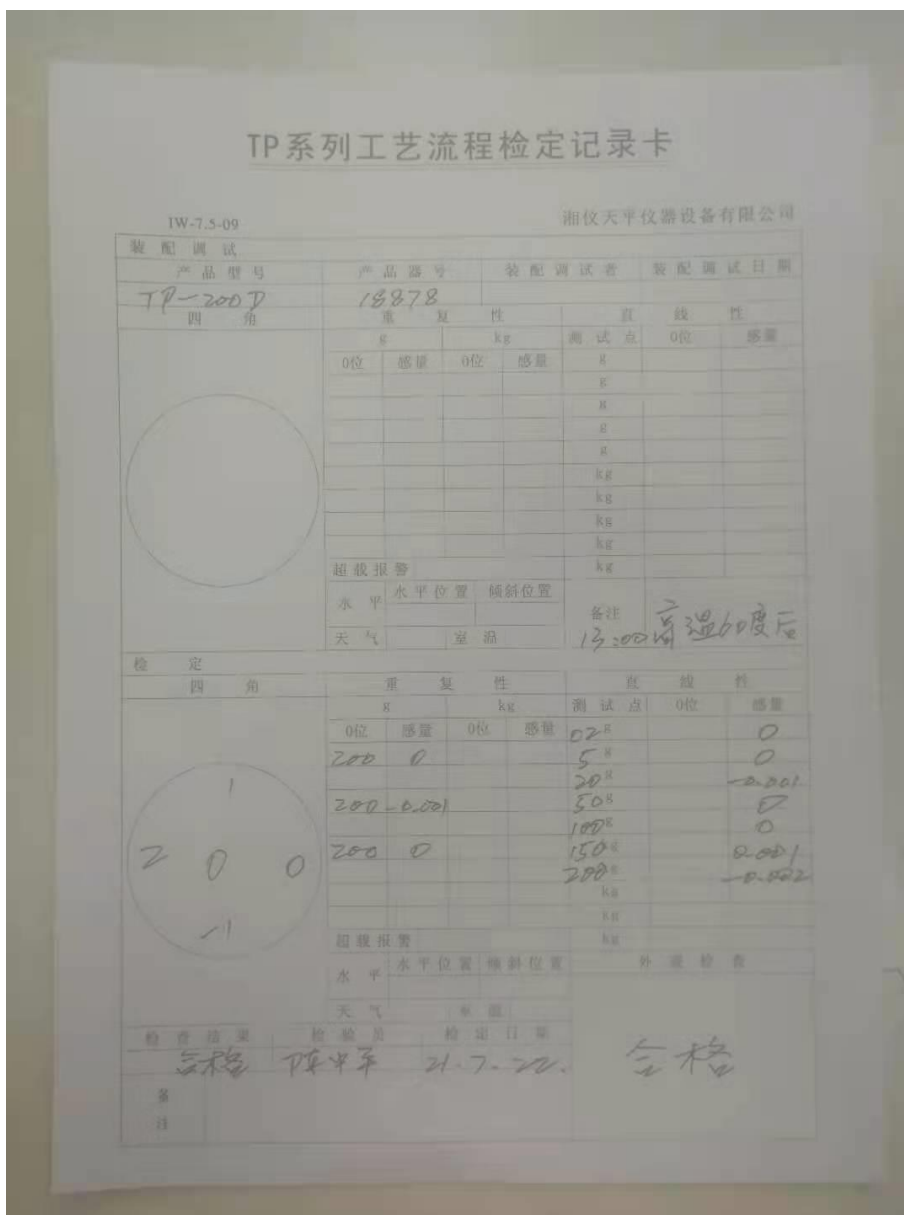 TP系列工艺流程检定记录卡
IW-7.5-09 湘仪天平仪器设备有限公司
装配调试
产品型号 产品器号 装配调试者 装配调试日期
TP-200D 18878
四角 重复性 直线性
g kg 测试点 0位 感量
0位 感量 0位 感量 g
g
g
g
g
kg
kg
kg
kg
超载报警 kg
水平 水平位置 倾斜位置
备注
天气 室温 13:00高温60度后
检定
四角 重复性 直线性
g kg 测试点 0位 感量
0位 感量 0位 感量 02g 0
200 0 5g 0
1 20g -0.001
200 -0.001 50g 0
100g 0
2 0 0 200 0 150g 0.001
200g -0.002
kg
-1 kg
超载报警 kg
水平 水平位置 倾斜位置 外观检查
天气 室温
检查结果 检验员 检定日期
合格 21.7.22. 合格
备注